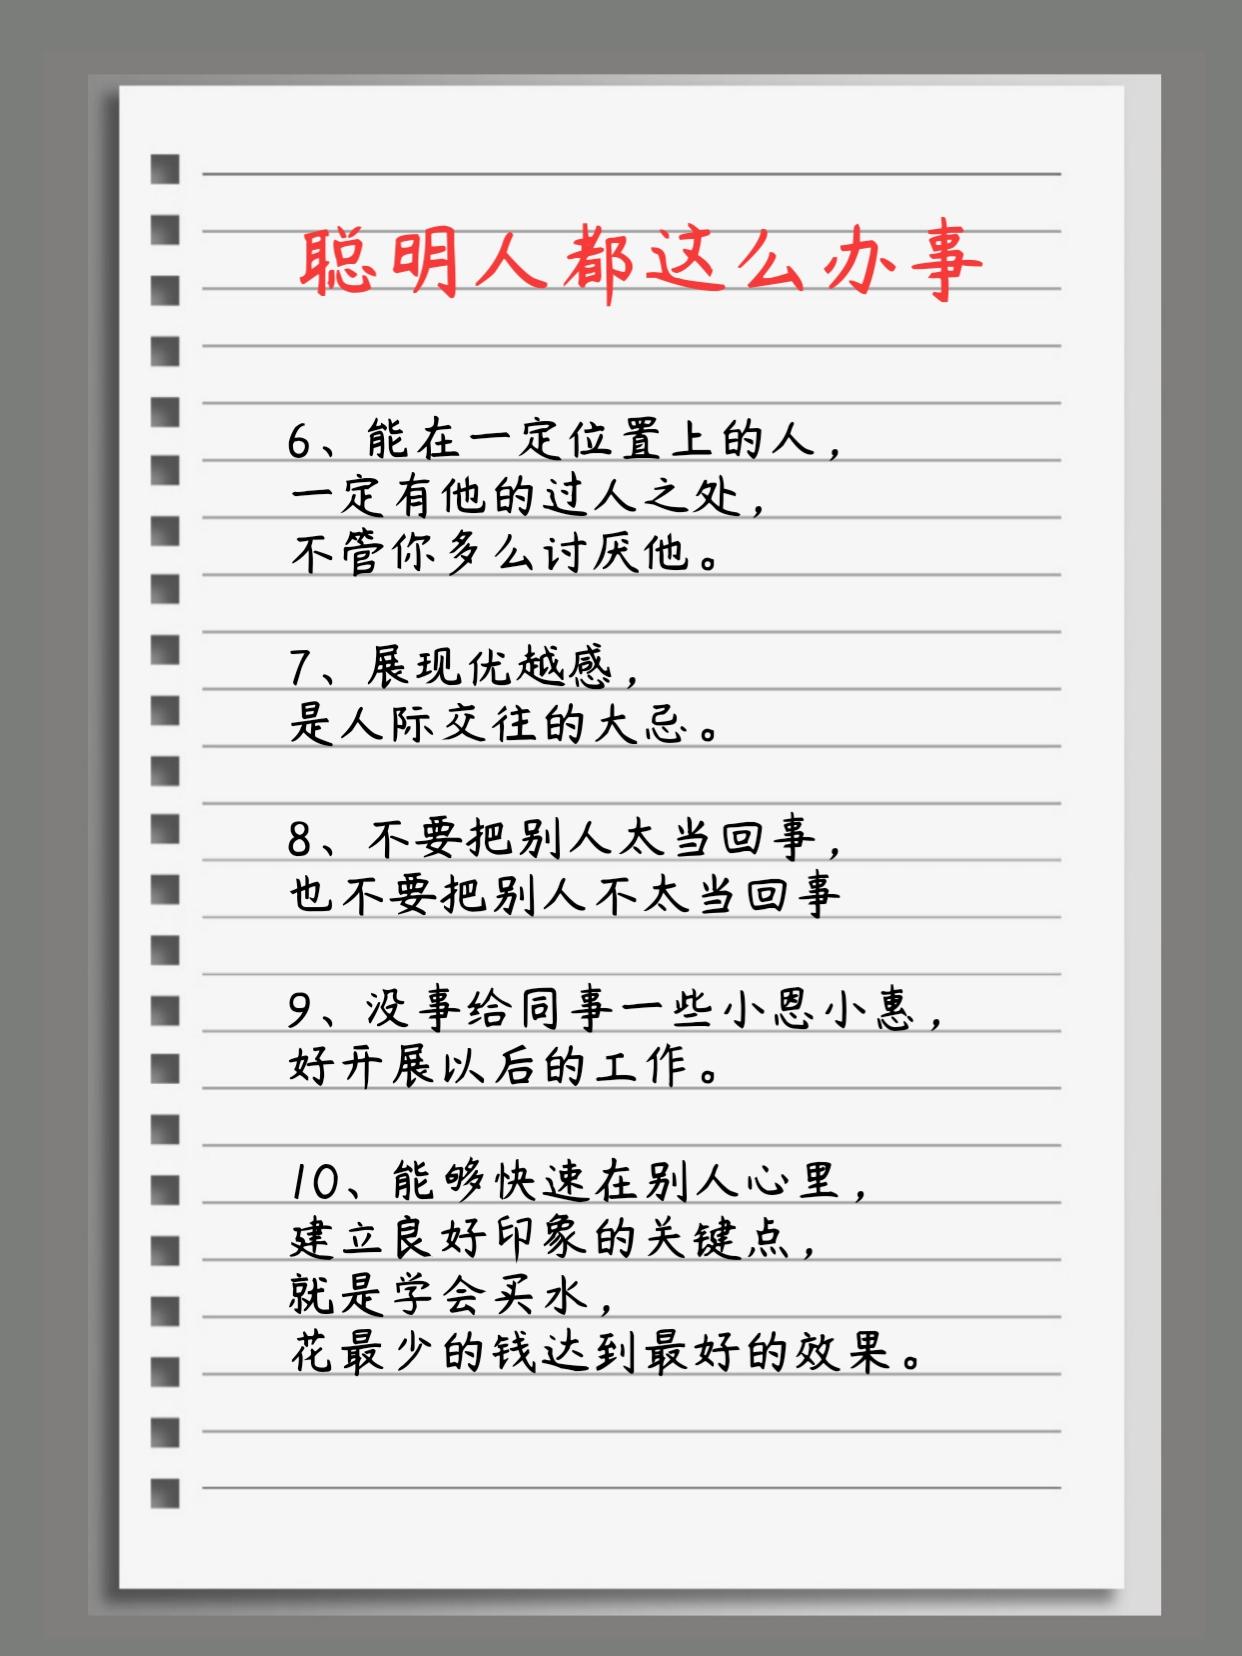 聪明人都这么办事
6、能在一定位置上的人，
一定有他的过人之处，
不管你多么讨厌他。
7、展现优越感，
是人际交往的大忌。
8、不要把别人太当回事，
也不要把别人不太当回事
9、没事给同事一些小恩小惠，
好开展以后的工作。
10、能够快速在别人心里，
建立良好印象的关键点，
就是学会买水，
花最少的钱达到最好的效果。